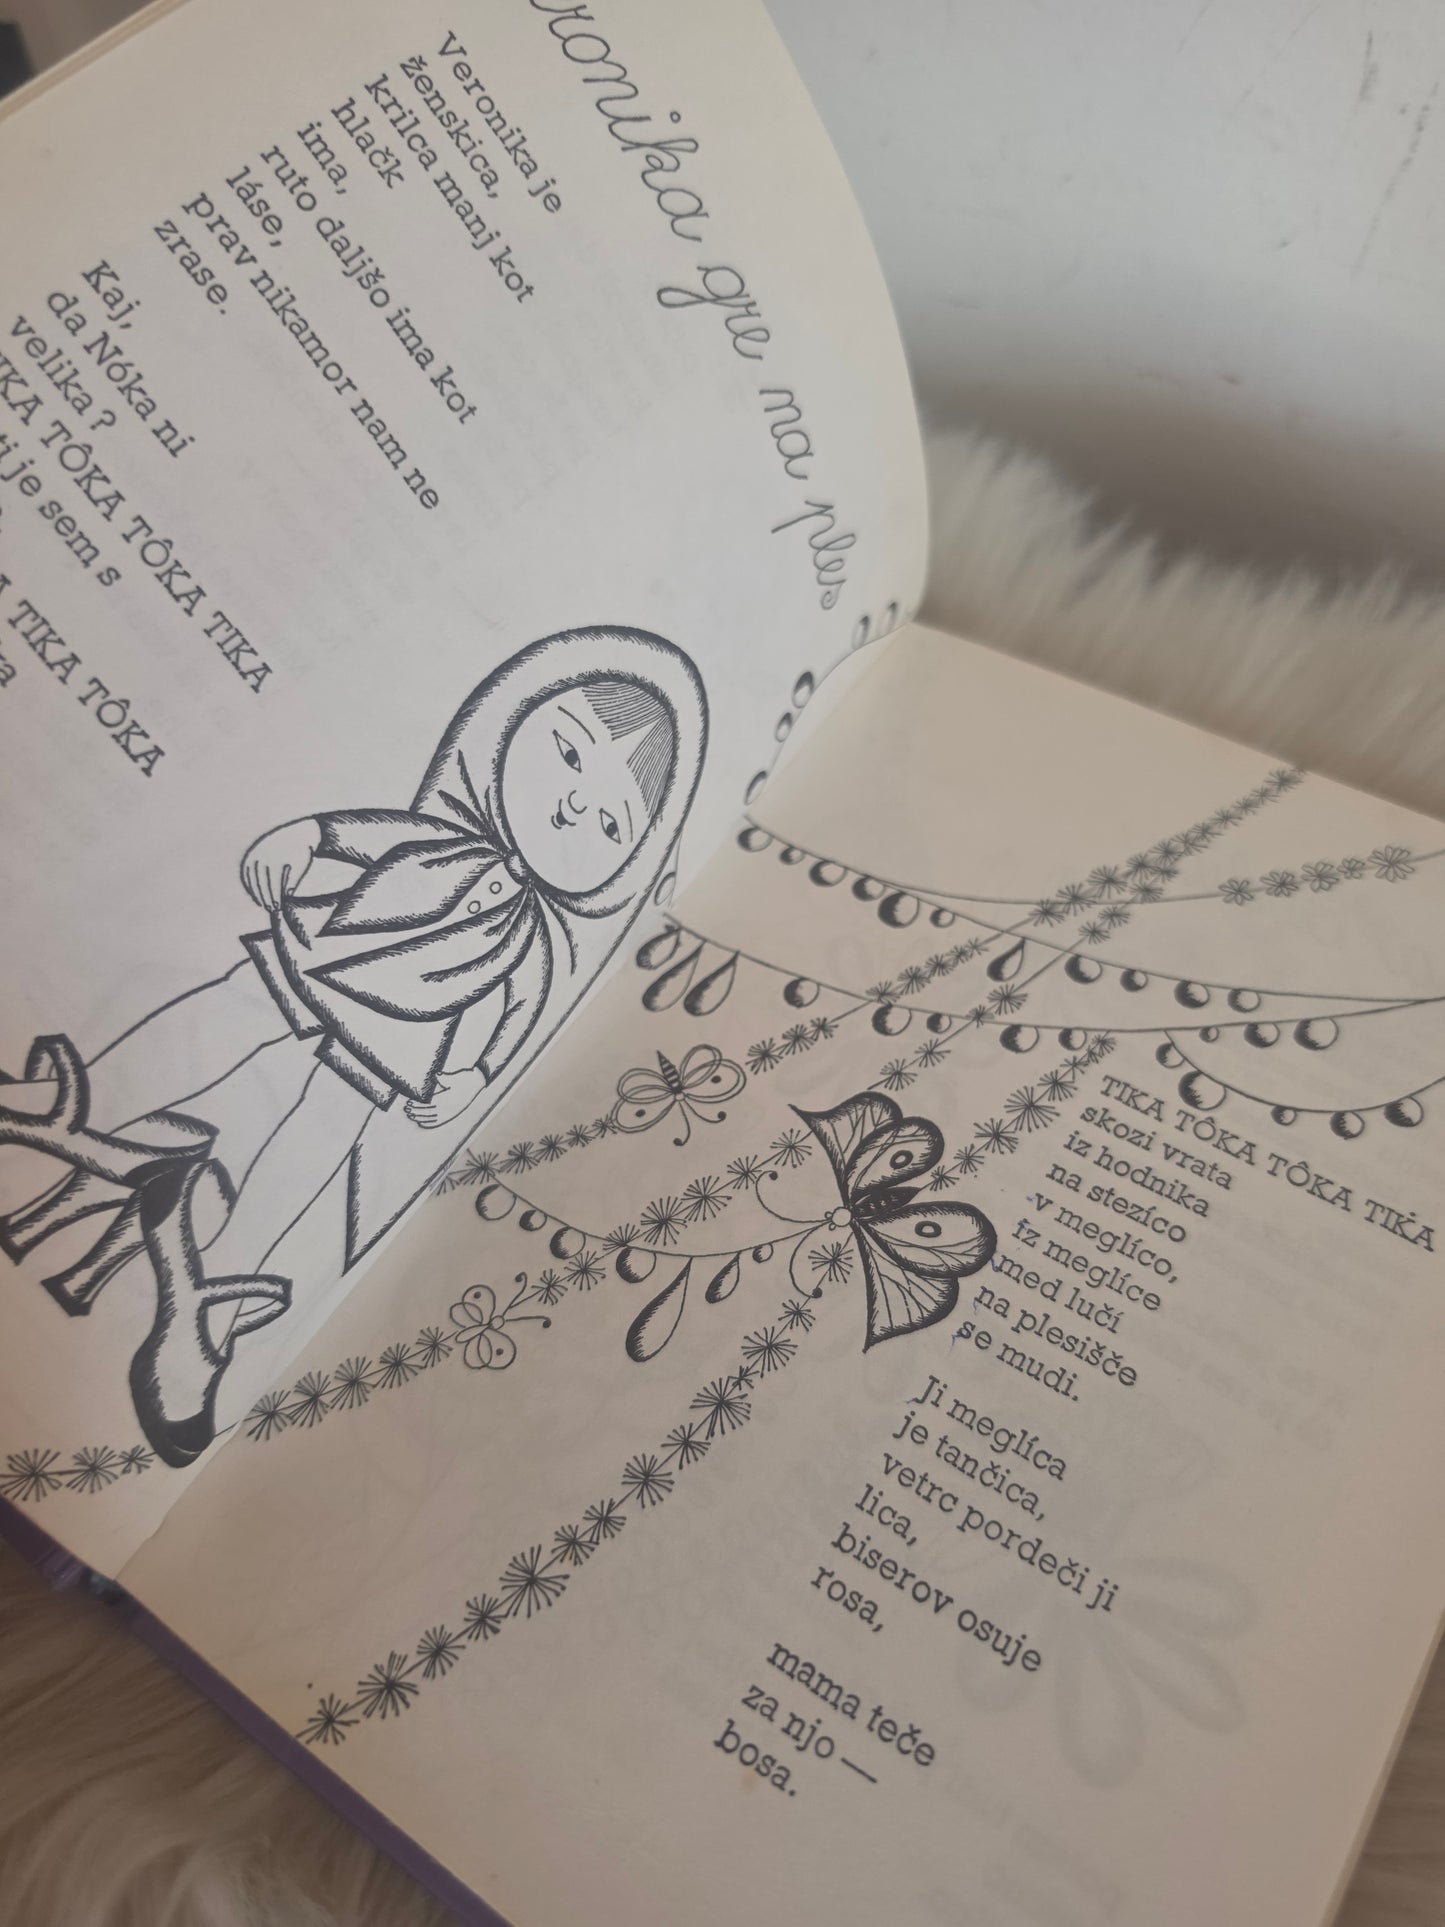 ronika gre na ples
Veronika je
ženskica,
krilca manj kot
hlačk
ima,
ruto daljšo ima kot
láse,
prav nikamor nam ne
zrase.
Kaj,
da Nóka ni
velika?
TÔKA TÔKA TIKA
je sem s
TIKA TÔKA
TIKA TÔKA TÔKA TIKA
skozi vrata
iz hodnika
na stezíco
v meglíco,
iz meglíce
med lučí
na plesišče
se mudi.
Ji meglíca
je tančica,
vetrc pordeči ji
lica,
biserov osuje
rosa,
mama teče
za njo —
bosa.